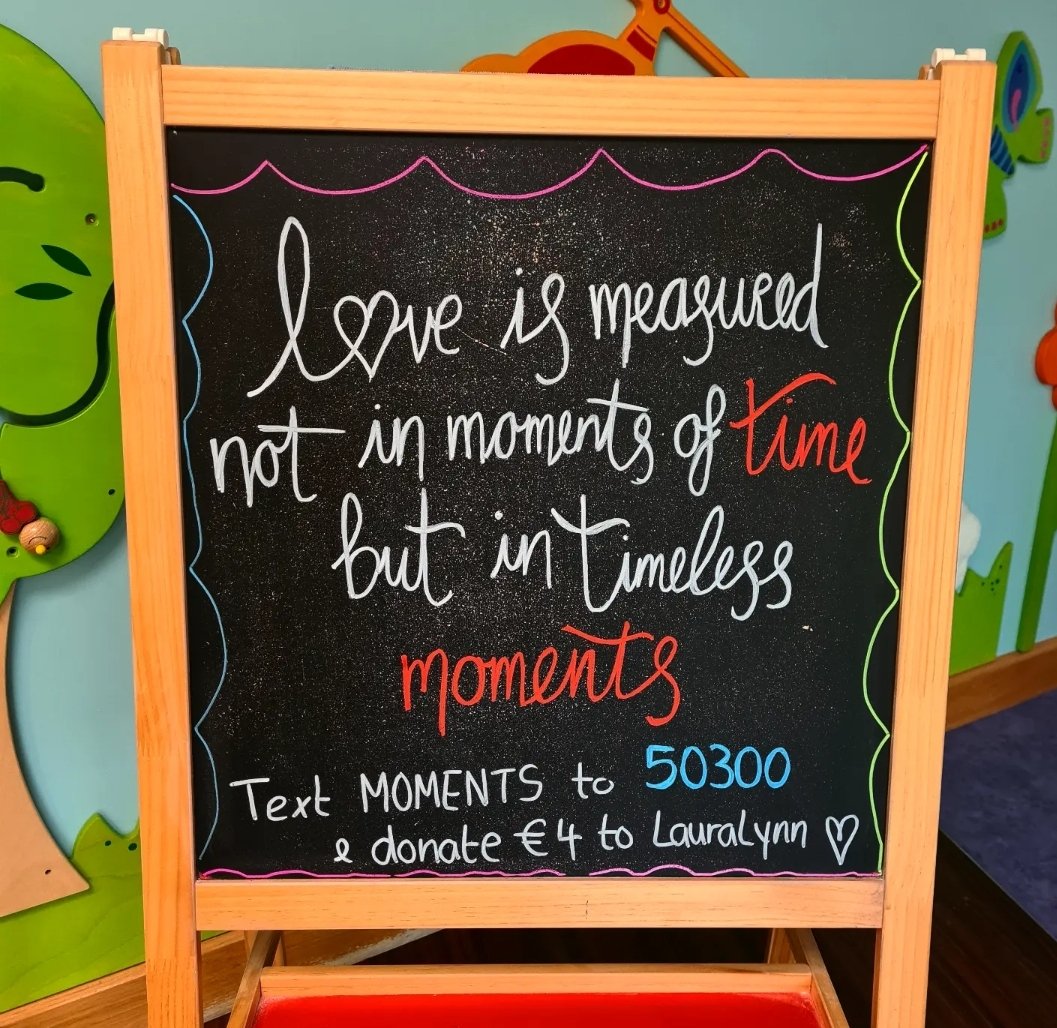 Love is measured
not in moments of time
but in timeless
moments
Text MOMENTS to 50300
& donate €4 to LauraLynn ♡